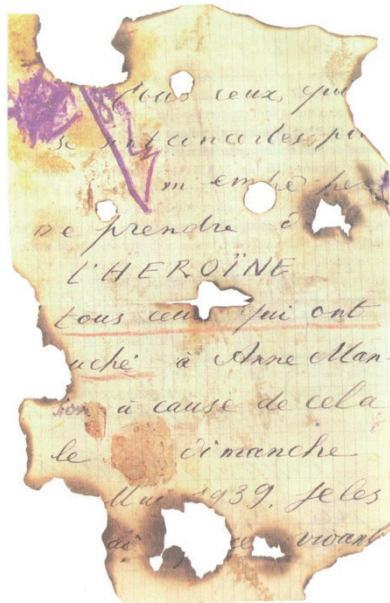 Tous ceux, qui
se sont concertés po
m empê her
de prendre d
L'HEROÏNE
tous ceux qui ont
uché à Anne Man-
sion à cause de cela
le dimanche
Mai 1939. Je les
vivant